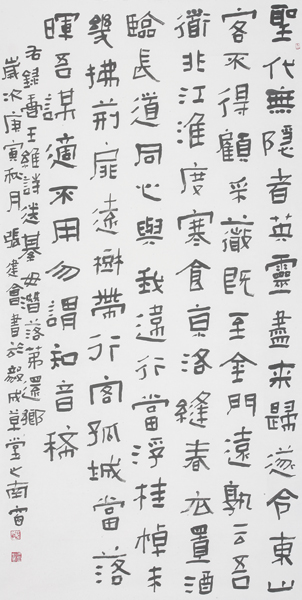 聖代無隱者英靈盡来歸遂令東山
客不得顧采薇既至金門遠孰云吾
道非江淮度寒食京洛縫春衣置酒
臨長道同心與我違行當浮桂棹未
幾拂荆扉遠樹帶行客孤城當落
暉吾謀適不用勿謂知音稀
右録唐王維詩送綦毋潛落第還鄉
歲次庚寅秋月張建會書於毅成草堂之南窗